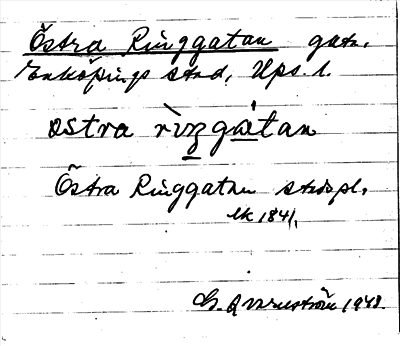 Östra Ringgatan gatn.
Enköpings stad, Ups. l.
östra rìŋgátan
Östra Ringgatan stadspl.
lk 1841.
G. Qvarnström 1948.